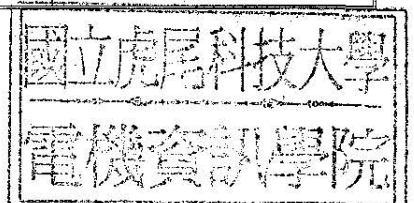 國立虎尾科技大學
電機資訊學院